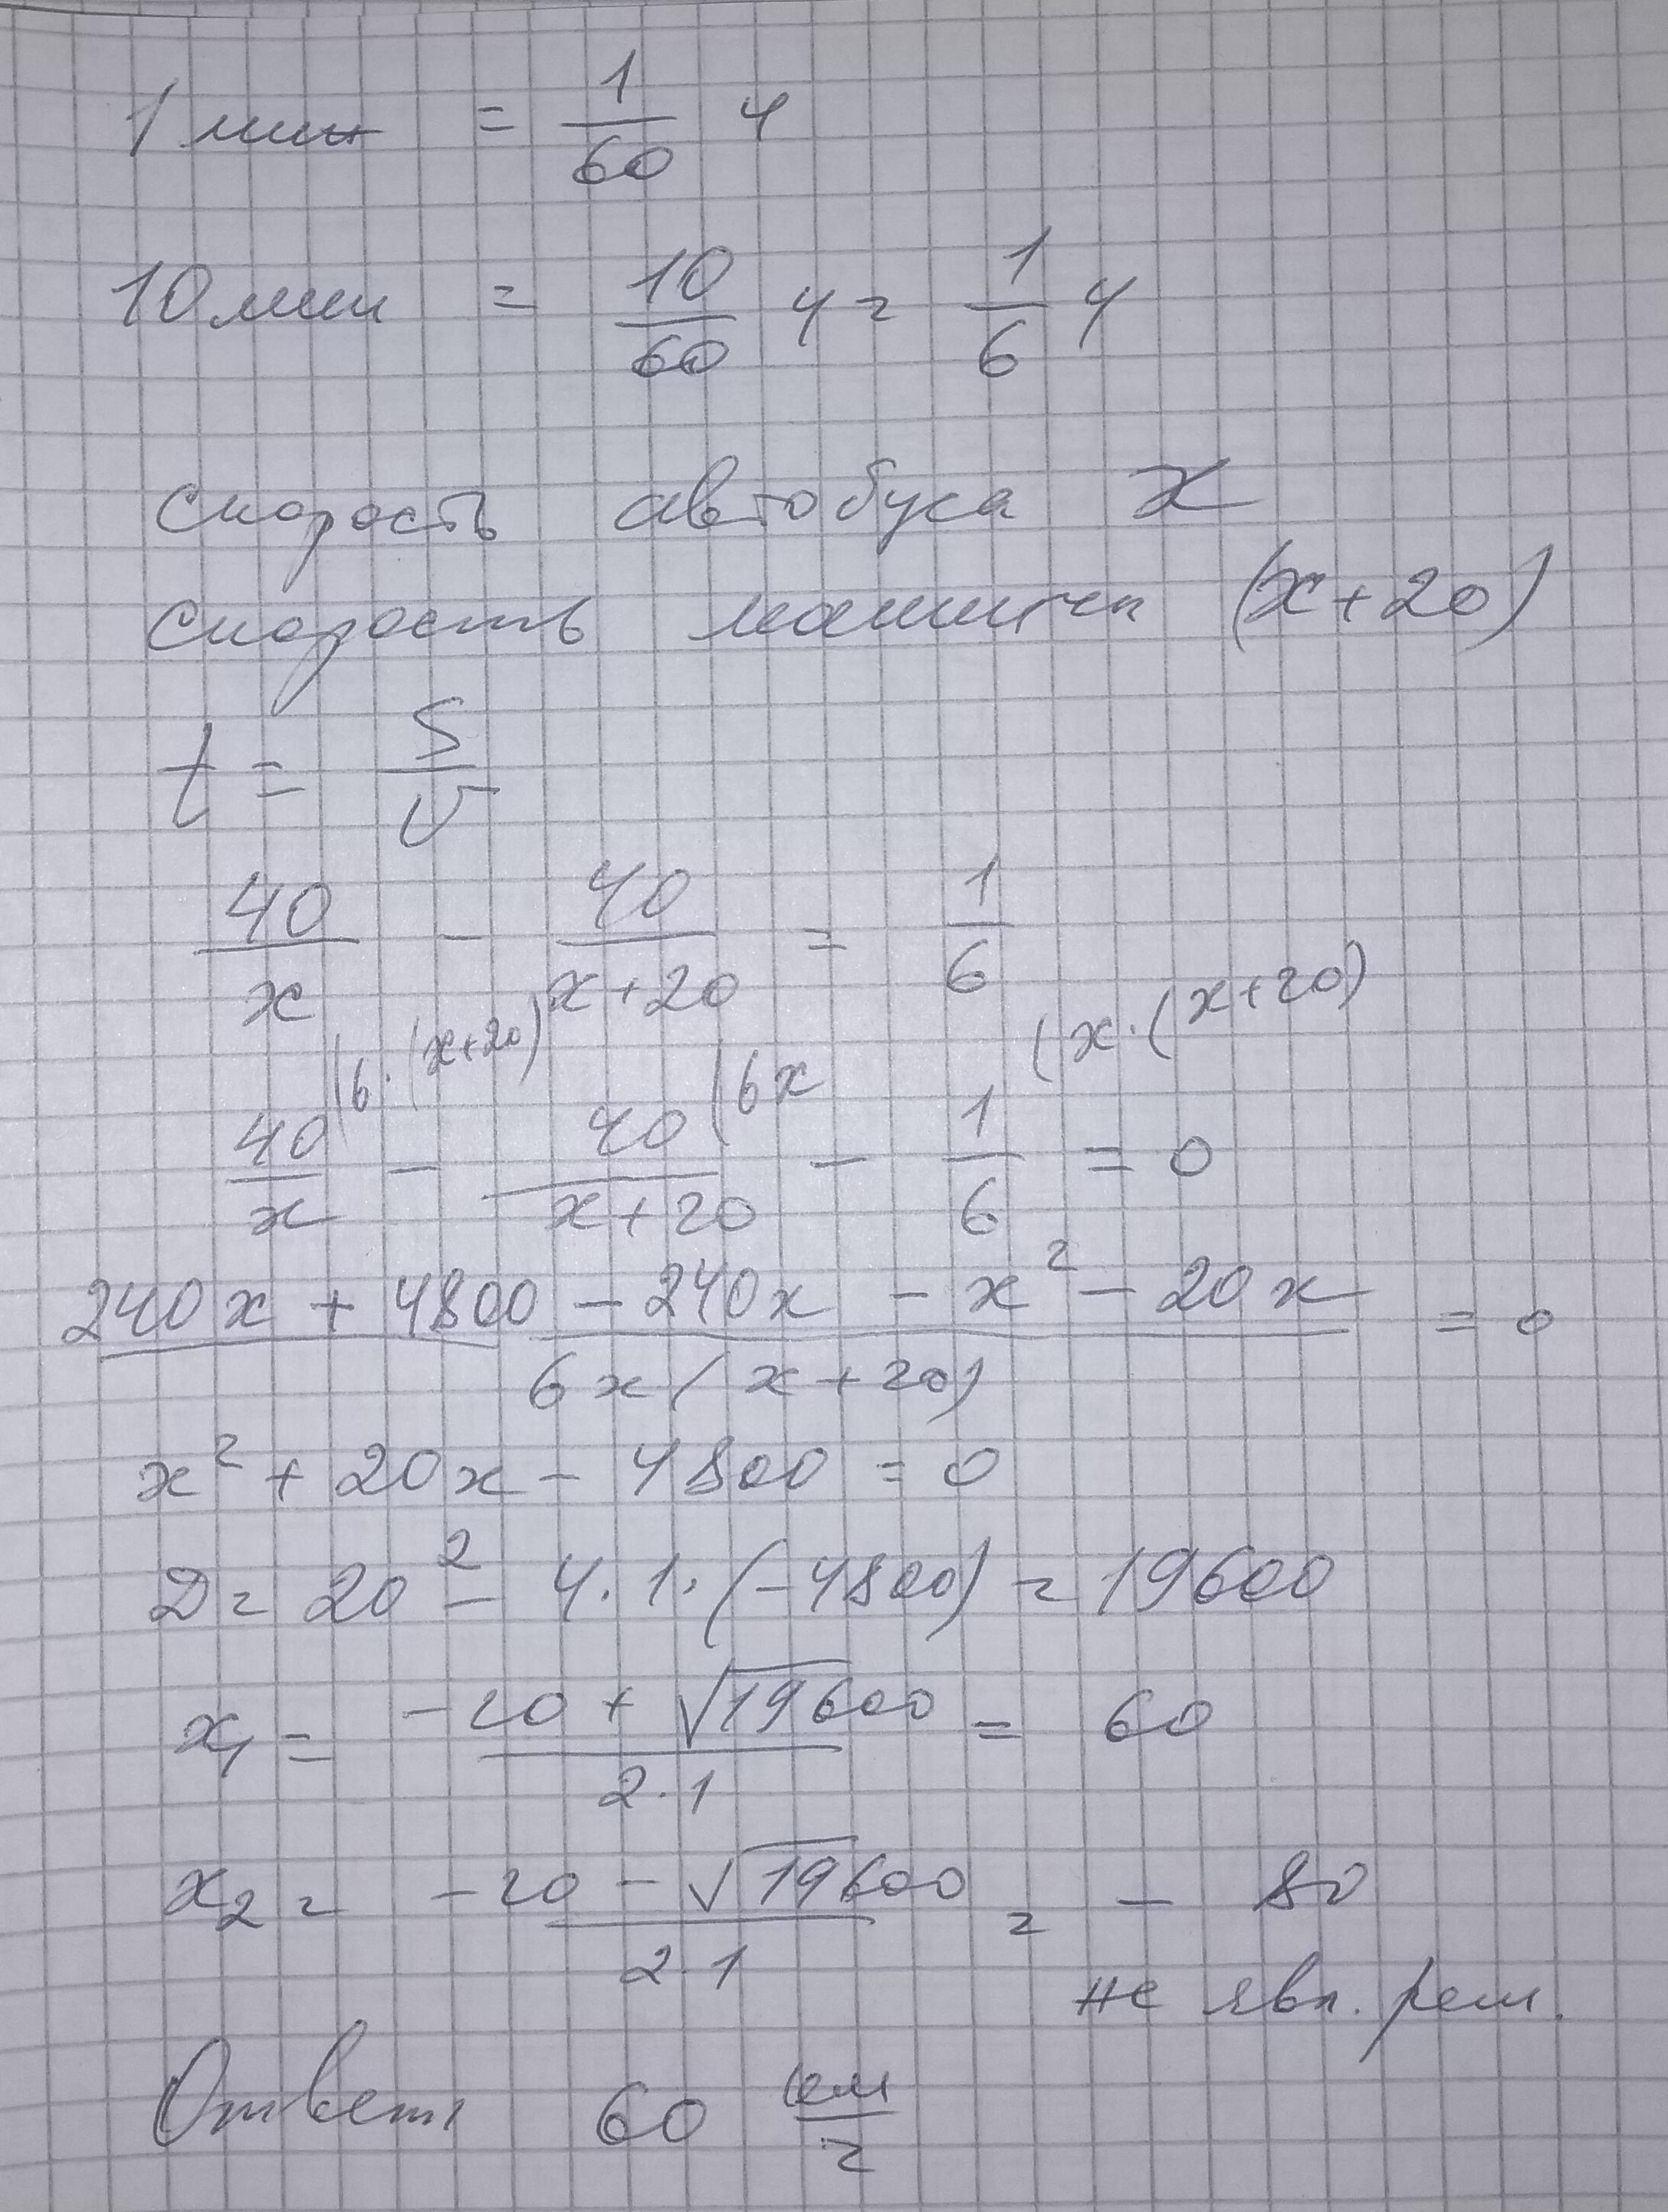 1 мин = 1/60 ч
10 мин = 10/60 ч = 1/6 ч
скорость автобуса x
скорость машины (x+20)
t = S/v
40/x - 40/(x+20) = 1/6
40/x |6·(x+20) - 40/(x+20) |6x - 1/6 |x·(x+20) = 0
(240x + 4800 - 240x - x² - 20x)/(6x(x+20)) = 0
x² + 20x - 4800 = 0
D = 20² - 4·1·(-4800) = 19600
x₁ = (-20 + √19600)/(2·1) = 60
x₂ = (-20 - √19600)/(2·1) = - 80
не явл. реш.
Ответ 60 км/ч